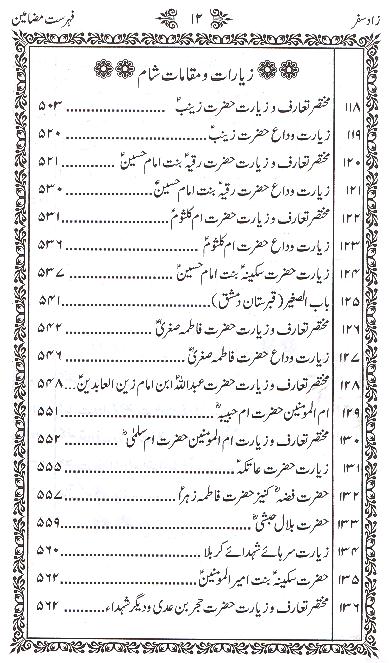 زادِ سفر ۱۲ فہرست مضامین
زیارات و مقامات شام
۱۱۸ مختصر تعارف و زیارت حضرت زینبؑ ۵۰۳
۱۱۹ زیارت وداع حضرت زینبؑ ۵۲۰
۱۲۰ مختصر تعارف و زیارت حضرت رقیہؑ بنت امام حسینؑ ۵۲۱
۱۲۱ زیارت وداع حضرت رقیہؑ بنت امام حسینؑ ۵۳۰
۱۲۲ مختصر تعارف و زیارت حضرت ام کلثومؑ ۵۳۱
۱۲۳ زیارت وداع حضرت ام کلثومؑ ۵۳۶
۱۲۴ زیارت حضرت سکینہؑ بنت امام حسینؑ ۵۳۷
۱۲۵ باب الصغیر (قبرستان دمشق) ۵۴۱
۱۲۶ مختصر تعارف و زیارت حضرت فاطمہ صغریٰؑ ۵۴۲
۱۲۷ زیارت وداع حضرت فاطمہ صغریٰؑ ۵۴۶
۱۲۸ مختصر تعارف و زیارت حضرت عبداللہؑ ابن امام زین العابدینؑ ۵۴۸
۱۲۹ ام المومنین حضرت ام حبیبہؓ ۵۵۱
۱۳۰ مختصر تعارف و زیارت ام المومنین حضرت ام سلمٰیؓ ۵۵۲
۱۳۱ زیارت حضرت عاتکہؑ ۵۵۵
۱۳۲ حضرت فضہؓ کنیز حضرت فاطمہ زہراؑ ۵۵۷
۱۳۳ حضرت بلال حبشیؓ ۵۵۹
۱۳۴ زیارت سرہائے شہدائے کربلا ۵۶۰
۱۳۵ حضرت سکینہؑ بنت امیر المومنینؑ ۵۶۲
۱۳۶ مختصر تعارف و زیارت حضرت حجر بن عدی و دیگر شہداء ۵۶۲